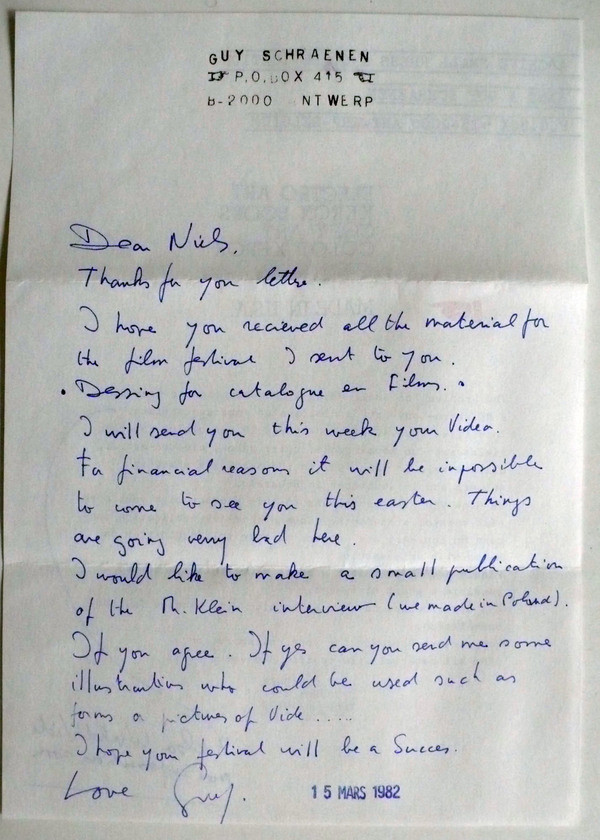 GUY SCHRAENEN
P.O.BOX 415
B-2000 NTWERP
Dear Niels,
Thanks for your lettre.
I hope you recieved all the material for
the film festival I sent to you.
for catalogue en Films.
I will send you this week your Video.
For financial reasons it will be impossible
to come to see you this easter. Things
are going verry bad here.
I would like to make a small publication
of the Th. Klein interview (we made in Poland).
If you agree. If yes can you send me some
illustrations who could be used such as
forms o pictures of Vide .....
I hope your festival will be a Succes.
Love Guy.
15 MARS 1982